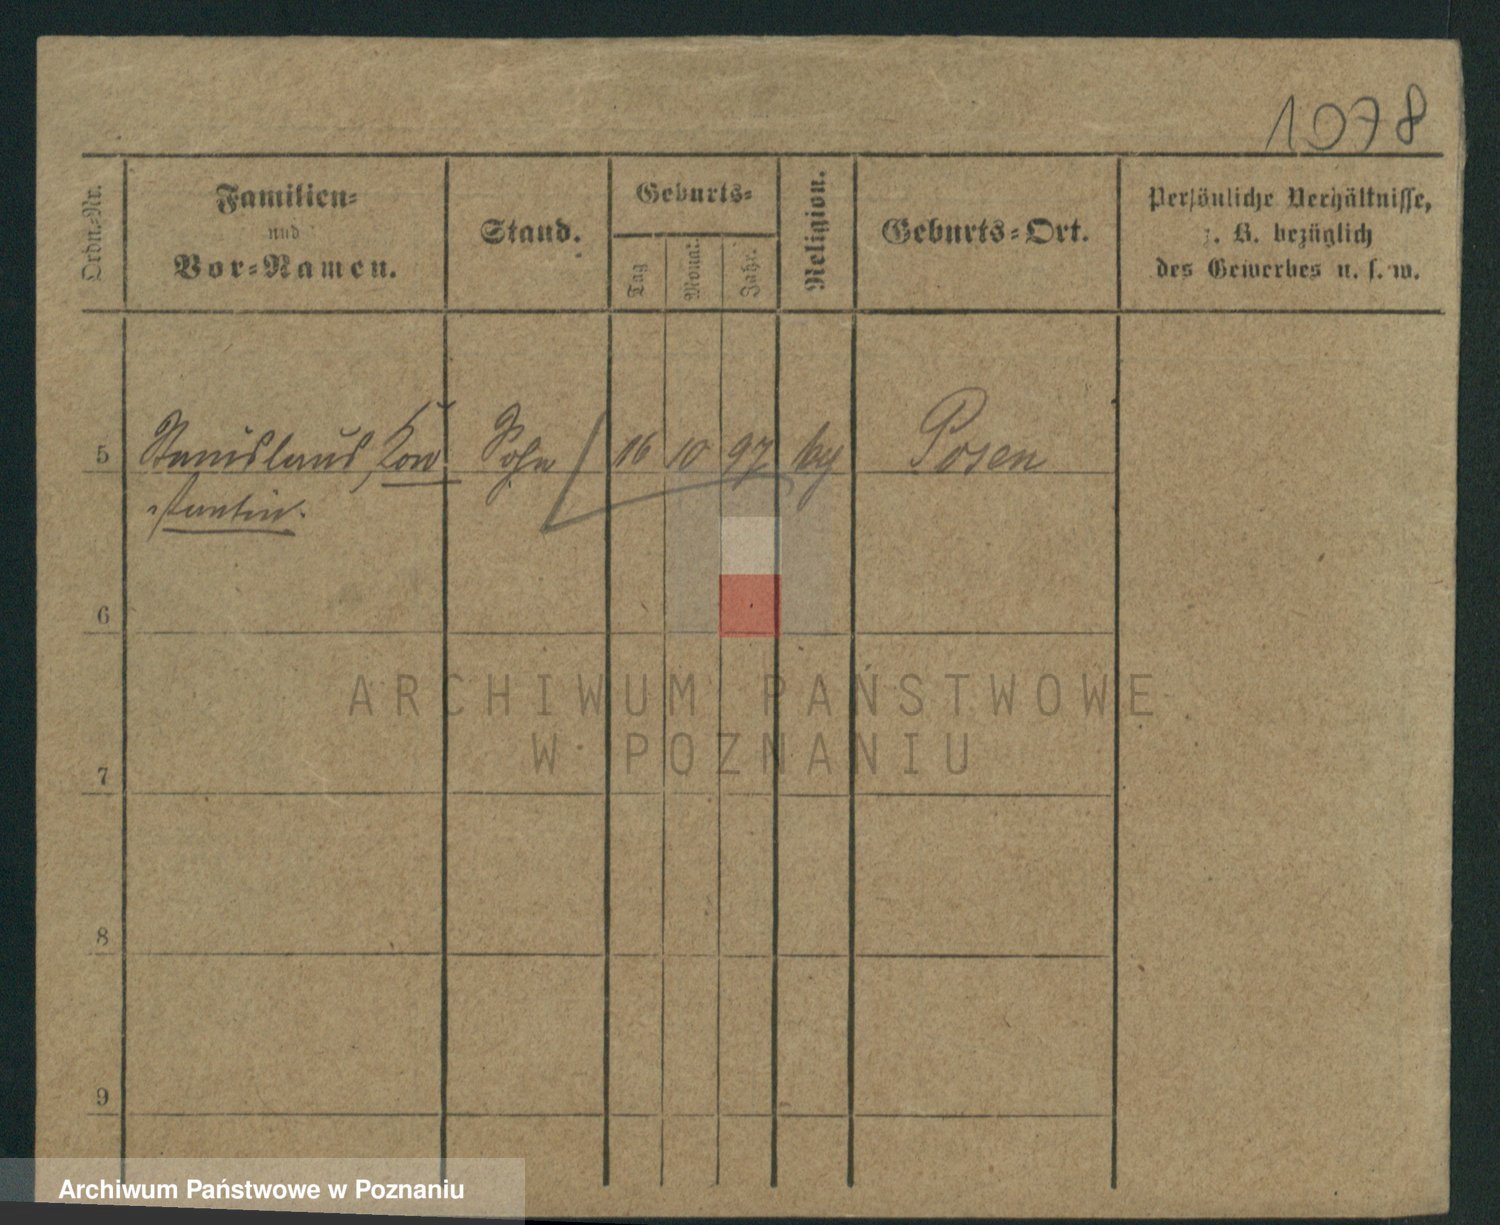 1078
Ordn.-Nr.
Familien-
und
Vor-Namen.
Stand.
Geburts-
Tag
Monat
Jahr.
Religion.
Geburts-Ort.
Persönliche Verhältnisse,
z. B. bezüglich
des Gewerbes u. s. w.
5 Stanislaus, Kon Sohn 16 10 97 Posen
stantin.
6
ARCHIWUM PAŃSTWOWE
W POZNANIU
7
8
9
Archiwum Państwowe w Poznaniu